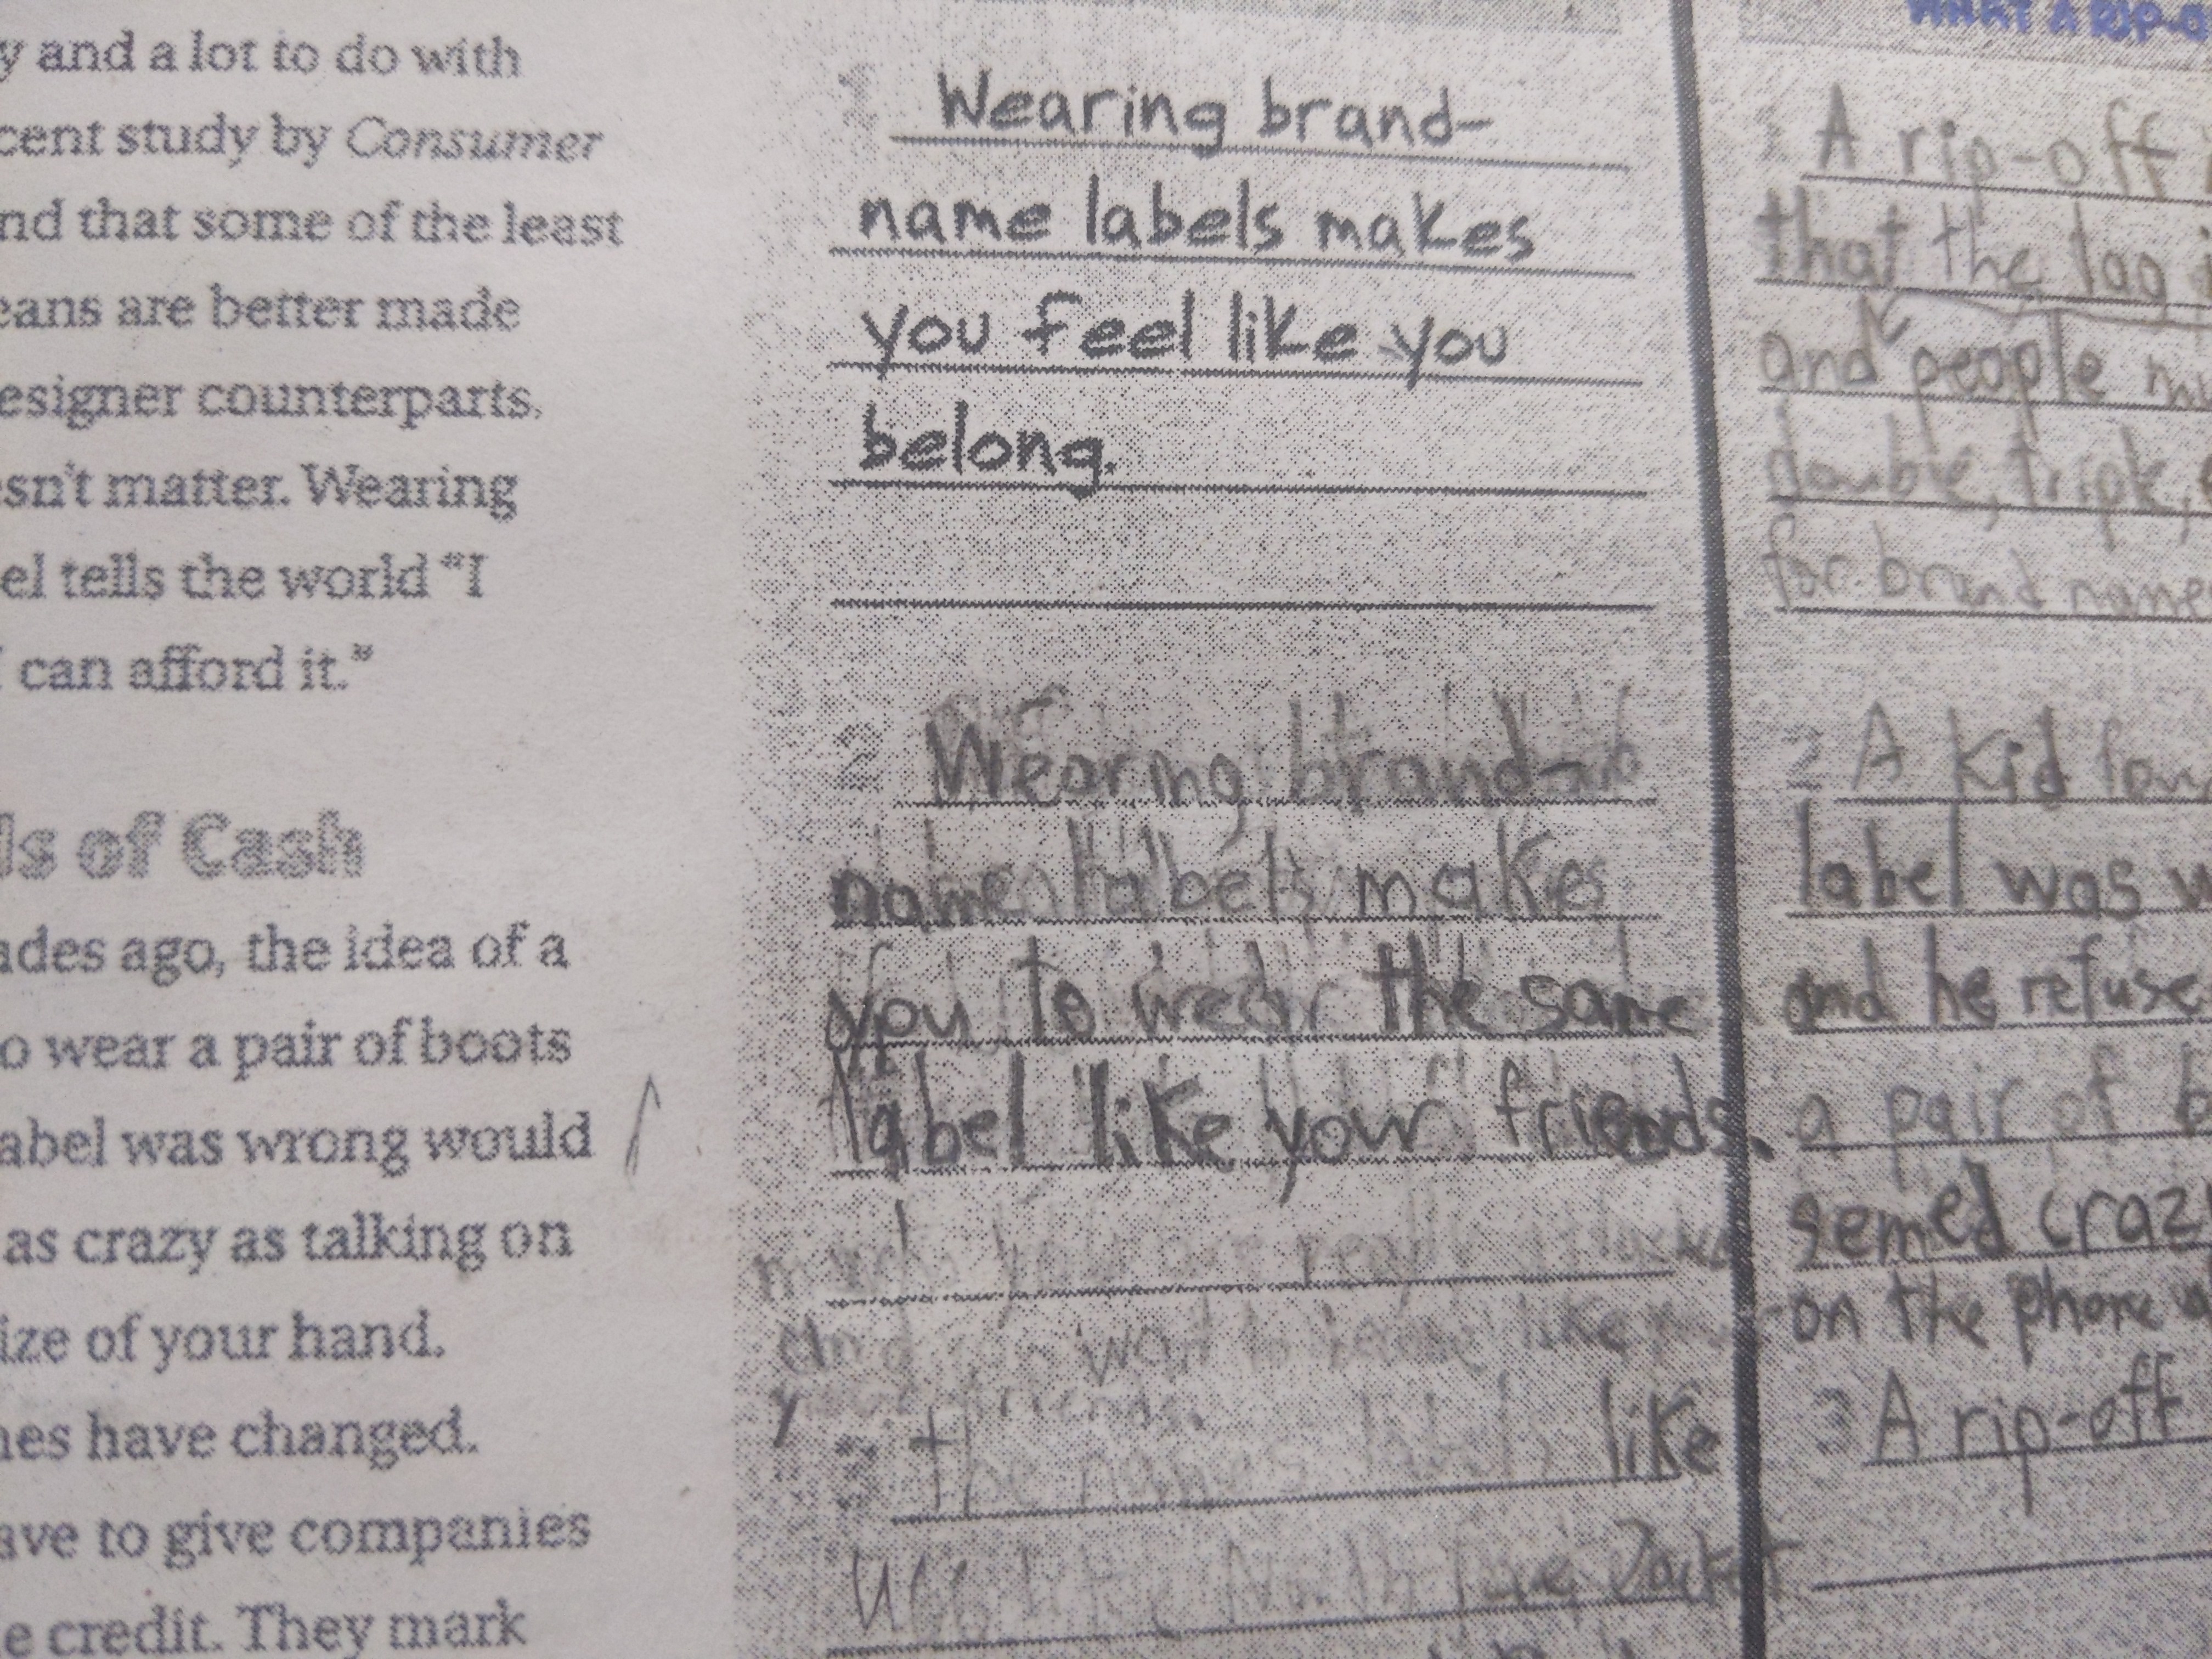 y and a lot to do with
cent study by Consumer
nd that some of the least
eans are better made
esigner counterparts.
esn't matter. Wearing
el tells the world "I
I can afford it."
ls of Cash
ades ago, the idea of a
o wear a pair of boots
abel was wrong would
as crazy as talking on
ize of your hand.
nes have changed.
ave to give companies
e credit. They mark
1 Wearing brand-
name labels makes
you feel like you
belong.
2 Wearing brand-
name labels makes
you to wear the same
label like your friends.
and want to like
your friends.
3 the names labels like
Jacket
WHAT A RIP-O
1 A rip-off
that the tag
and people
double, triple,
for brand name
2 A kid
label was w
and he refuse
a pair of b
semed craz
on the phone
3 A rip-off